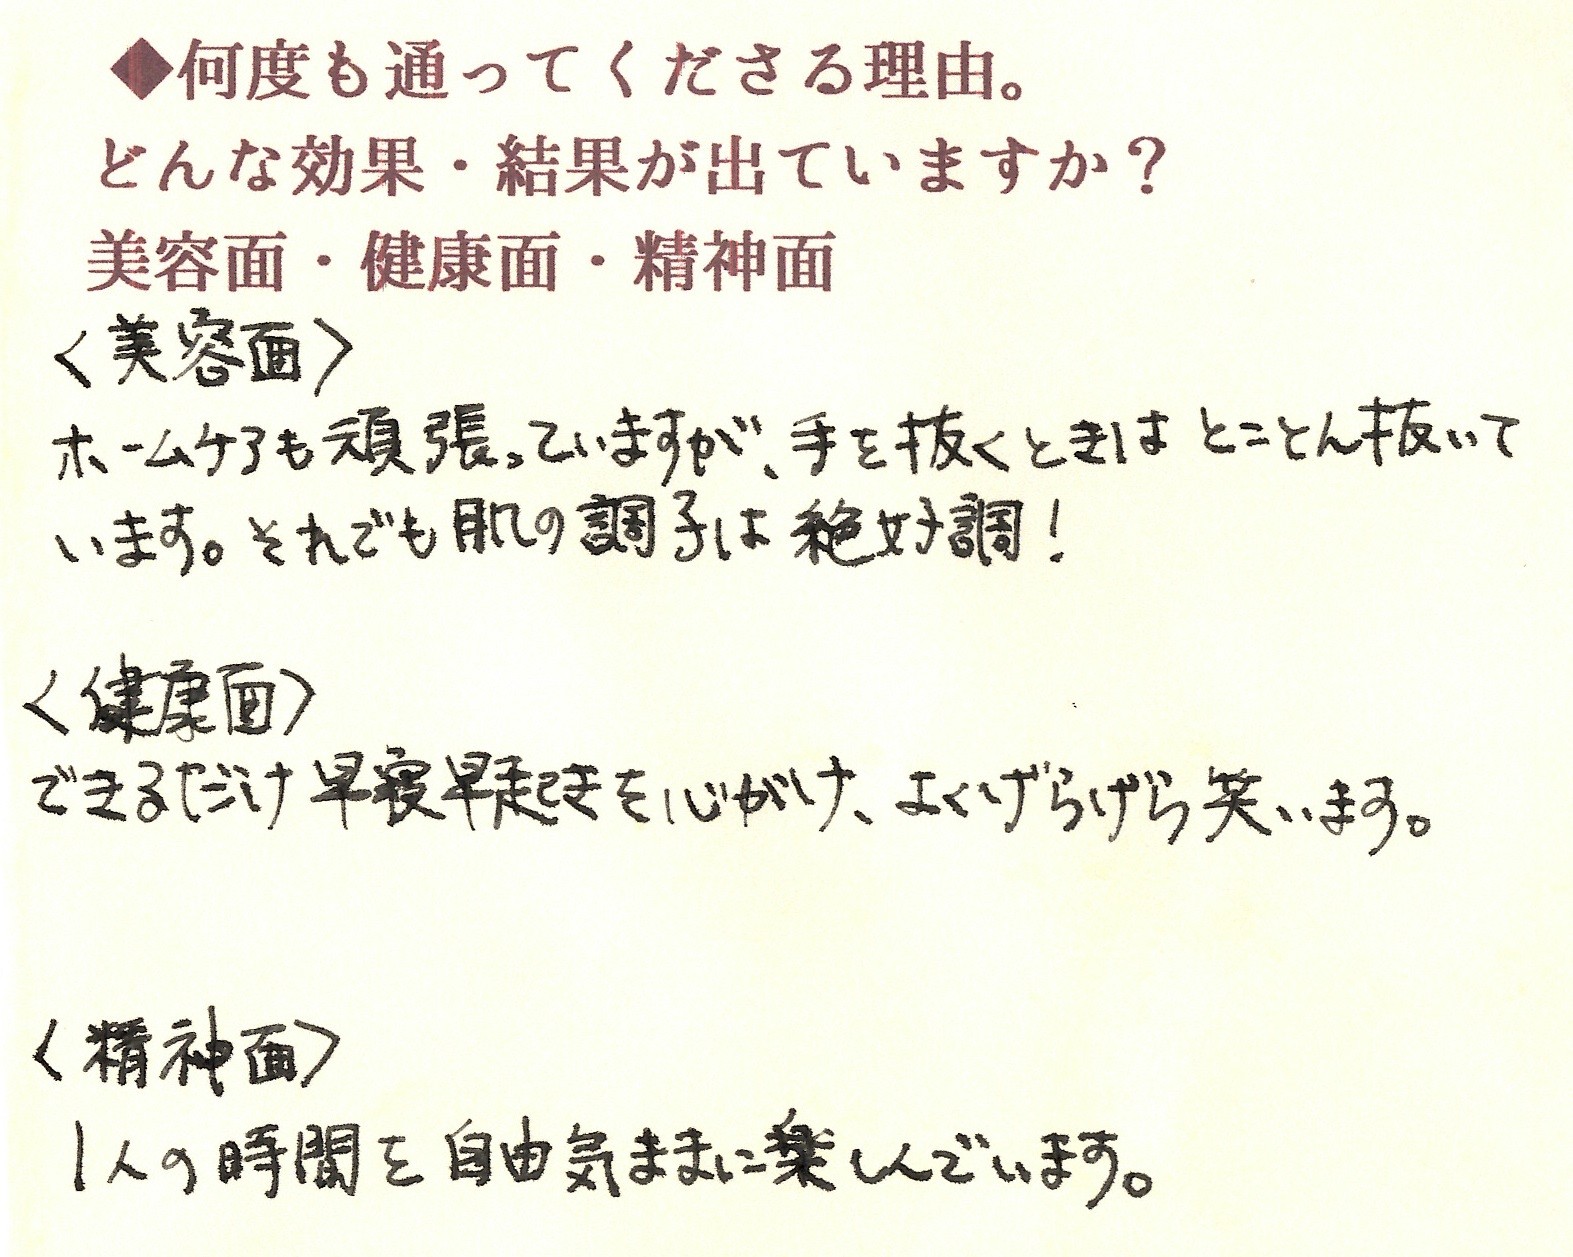 ◆何度も通ってくださる理由。
どんな効果・結果が出ていますか？
美容面・健康面・精神面
〈美容面〉
ホームケアも頑張っていますが、手を抜くときはとことん抜いて
います。それでも肌の調子は絶好調！
〈健康面〉
できるだけ早寝早起きを心がけ、よくげらげら笑います。
〈精神面〉
1人の時間を自由気ままに楽しんでいます。